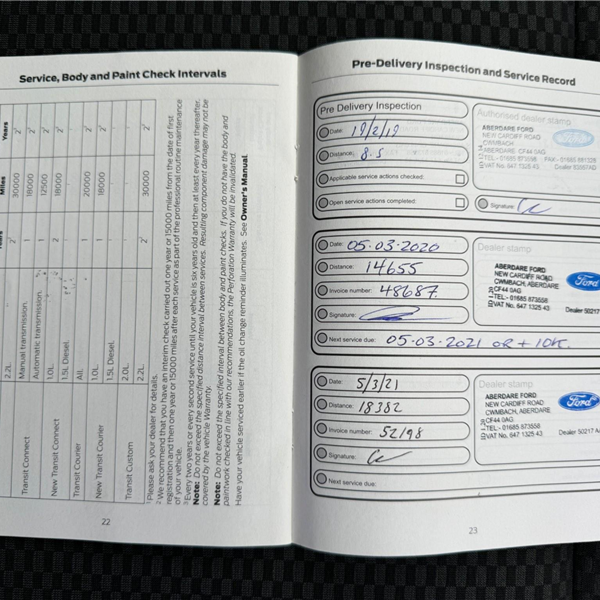 Service, Body and Paint Check Intervals
Years
Miles
Years
2.2L
2
30000
2
Transit Connect
Manual transmission.
1
18000
2
Automatic transmission.
1
12500
2
New Transit Connect
1.0L
2
18000
2
1.5L Diesel.
Transit Courier
All.
1
20000
2
New Transit Courier
1.0L
1
18000
2
1.5L Diesel.
1
Transit Custom
2.0L
2.2L
2
30000
2
1 Please ask your dealer for details.
2 We recommend that you have an interim check carried out one year or 15000 miles from the date of first
registration and then one year or 15000 miles after each service as part of the professional routine maintenance
of your vehicle.
3 Every two years or every second service until your vehicle is six years old and then at least every year thereafter.
Note: Do not exceed the specified distance interval between services. Resulting component damage may not be
covered by the vehicle Warranty.
Note: Do not exceed the specified interval between body and paint checks. If you do not have the body and
paintwork checked in line with our recommendations, the Perforation Warranty will be invalidated.
Have your vehicle serviced earlier if the oil change reminder illuminates. See Owner's Manual.
22
Pre-Delivery Inspection and Service Record
Pre Delivery Inspection
Date: 19/2/19
Distance: 8.5
Applicable service actions checked:
Open service actions completed:
Authorised dealer stamp
ABERDARE FORD
NEW CARDIFF ROAD
CWMBACH,
ABERDARE CF44 0AG
TEL - 01685
VAT No. 647 1325 43
Ford
Signature:
Date: 05.03.2020
Distance: 14655
Invoice number: 48687.
Signature:
Next service due: 05-03-2021 OR + 10K.
Dealer stamp
ABERDARE FORD
NEW CARDIFF ROAD
CWMBACH, ABERDARE
CF44 0AG
TEL:- 01685 873558
VAT No. 647 1325 43
Dealer 50217
Ford
Date: 5/3/21
Distance: 18382
Invoice number: 52198
Signature:
Next service due:
Dealer stamp
ABERDARE FORD
NEW CARDIFF ROAD
CWMBACH, ABERDARE
CF44 0AG
TEL:- 01685 873558
VAT No. 647 1325 43
Dealer 50217
Ford
23